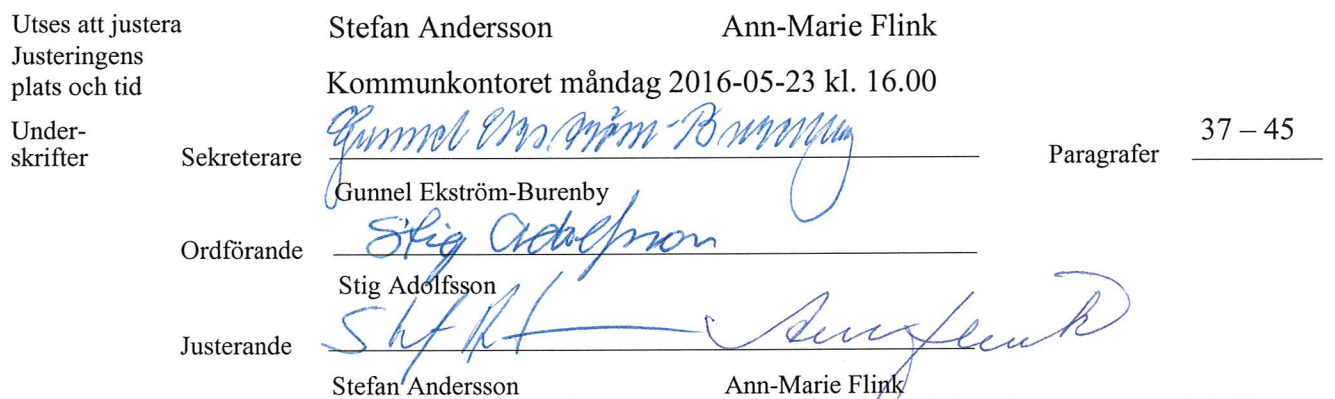 Utses att justera Stefan Andersson Ann-Marie Flink
Justeringens
plats och tid Kommunkontoret måndag 2016-05-23 kl. 16.00
Under-
skrifter Sekreterare Gunnel Ekström-Burenby Paragrafer 37 – 45
Gunnel Ekström-Burenby
Ordförande Stig Adolfsson
Stig Adolfsson
Justerande
Stefan Andersson Ann-Marie Flink